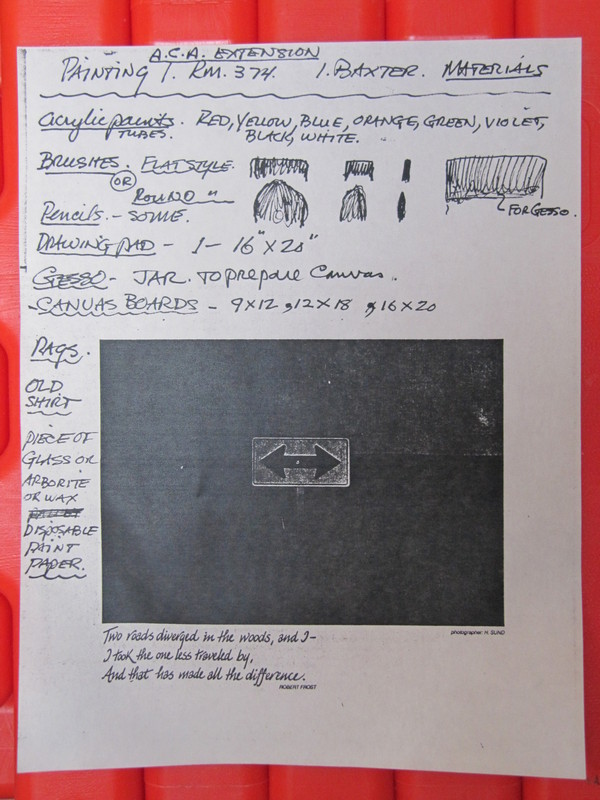 A.C.A. EXTENSION
PAINTING 1. RM. 374. I. BAXTER. MATERIALS
Acrylic paints. RED, YELLOW, BLUE, ORANGE, GREEN, VIOLET,
TUBES. BLACK, WHITE.
BRUSHES. FLAT STYLE.
OR
ROUND "
FOR GESSO.
Pencils. - SOME.
DRAWING PAD - 1 - 16" X 20"
GESSO - JAR. TO prepare Canvas.
CANVAS BOARDS - 9X12, 12X18, 16X20
RAGS.
OLD
SHIRT
PIECE OF
GLASS OR
ARBORITE
OR WAX
DISPOSABLE
PAINT
PAPER.
Two roads diverged in the woods, and I-
I took the one less traveled by,
And that has made all the difference.
ROBERT FROST
photographer: H. SUND